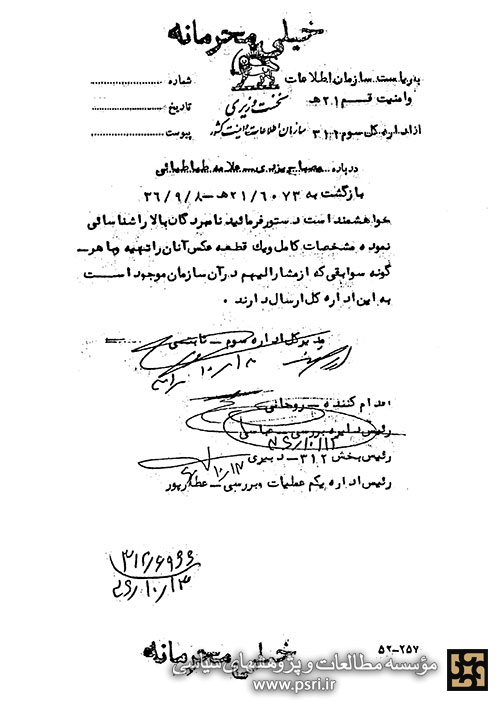 خیلی محرمانه
بریاست سازمان اطلاعات
وامنیت قسم ۲۱ هـ
از اداره کل سوم ۳۱۲
نخست وزیری
سازمان اطلاعات و امنیت کشور
شماره
تاریخ
پیوست
درباره مصباح یزدی - علامه طباطبائی
بازگشت به ۲۱/۶۰۷۳ هـ - ۳۶/۹/۸
خواهشمند است دستور فرمائید نامبردگان بالا را شناسائی
نموده مشخصات کامل ویک قطعه عکس آنان را تهیه و با هر
گونه سوابقی که از مشارالیهم در آن سازمان موجود است
به این اداره کل ارسال دارند .
مدیرکل اداره سوم - ثابتی
اقدام کننده - روحانی
رئیس دایره بررسی - عباسی
رئیس بخش ۳۱۲ - دبیری
رئیس اداره یکم عملیات وبررسی - عطارپور
۳۱۲/۶۹۶۶
خیلی محرمانه
۵۲-۲۵۷
مؤسسه مطالعات و پژوهشهای سیاسی
www.psri.ir